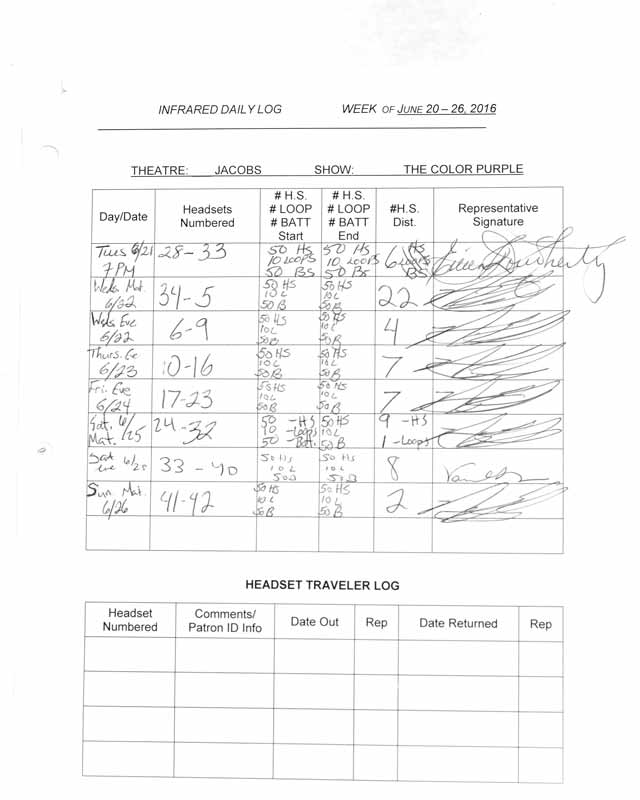 INFRARED DAILY LOG WEEK OF JUNE 20 – 26, 2016
THEATRE: JACOBS SHOW: THE COLOR PURPLE
Day/Date
Headsets
Numbered
# H.S.
# LOOP
# BATT
Start
# H.S.
# LOOP
# BATT
End
#H.S.
Dist.
Representative
Signature
Tues 6/21
7PM
28-33
50 HS
10 LOOPS
50 BS
50 HS
10 LOOPS
50 BS
6
HS
LOOPS
BS
Eileen Dougherty
Weds Mat.
6/22
34-5
50 HS
10 L
50 B
50 HS
10 L
50 B
22
Weds Eve
6/22
6-9
50 HS
10 L
50 B
50 HS
10 L
50 B
4
Thurs. Eve
6/23
10-16
50 HS
10 L
50 B
50 HS
10 L
50 B
7
Fri. Eve
6/24
17-23
50 HS
10 L
50 B
50 HS
10 L
50 B
7
Sat. 6/25
Mat.
24-32
50 -HS
10 -Loops
50 -Batt.
50 HS
10 L
50 B
9 -HS
1 -Loops
Sat 6/25
eve
33-40
50 HS
10 L
50 B
50 HS
10 L
50 B
8
Sun. Mat.
6/26
41-42
50 HS
10 L
50 B
50 HS
10 L
50 B
2
HEADSET TRAVELER LOG
Headset
Numbered
Comments/
Patron ID Info
Date Out
Rep
Date Returned
Rep